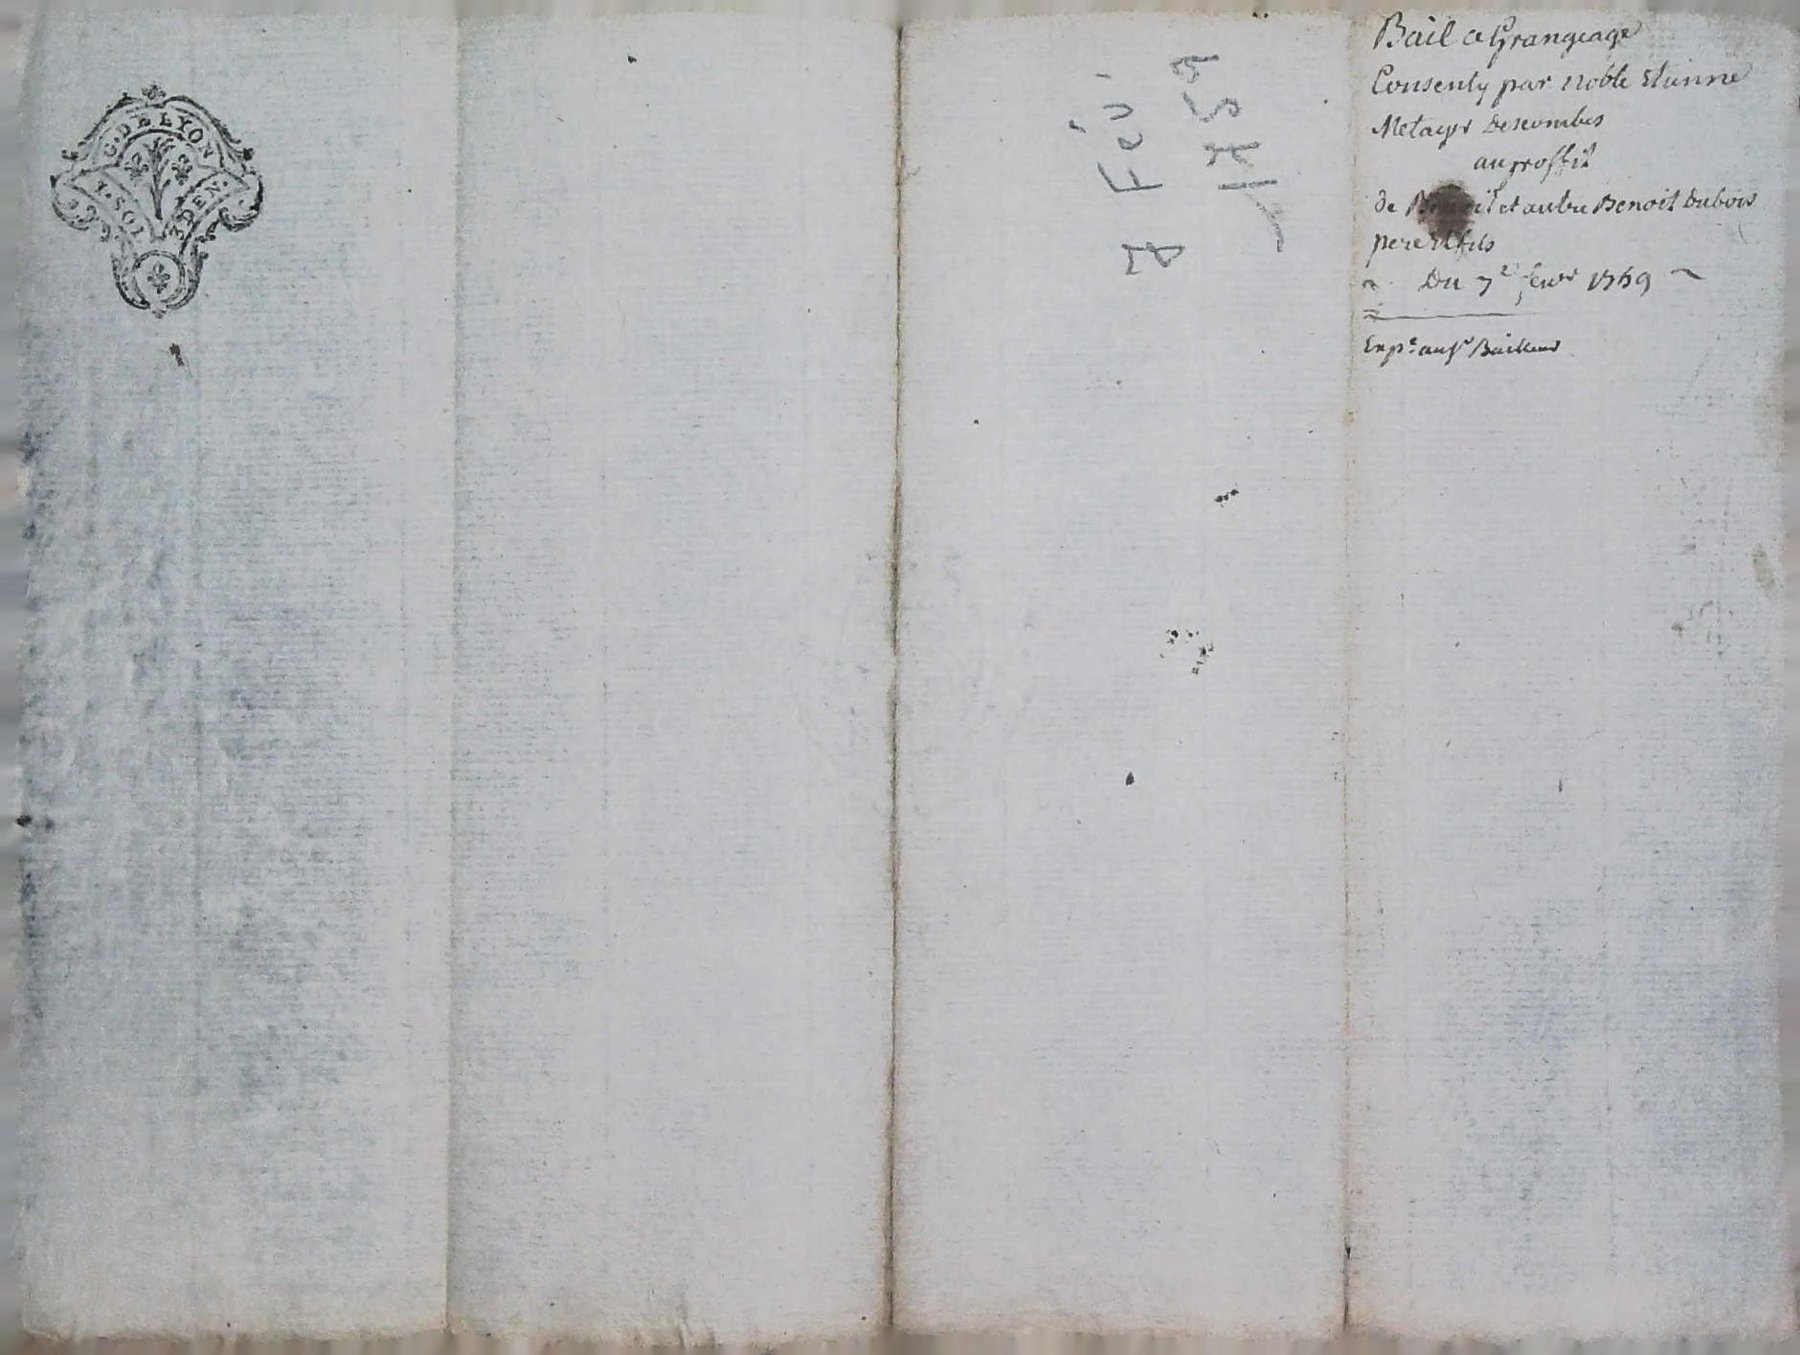 G. DE LYON
1. SOL 3 DEN.
7 Fév.
1759
Bail a Grangeage
Consenty par noble Etienne
Metayer Descombes
au proffit
de Benoit et autre Benoit Dubois
pere et fils
Du 7e fevr 1759
Expe. au sr Bailleur